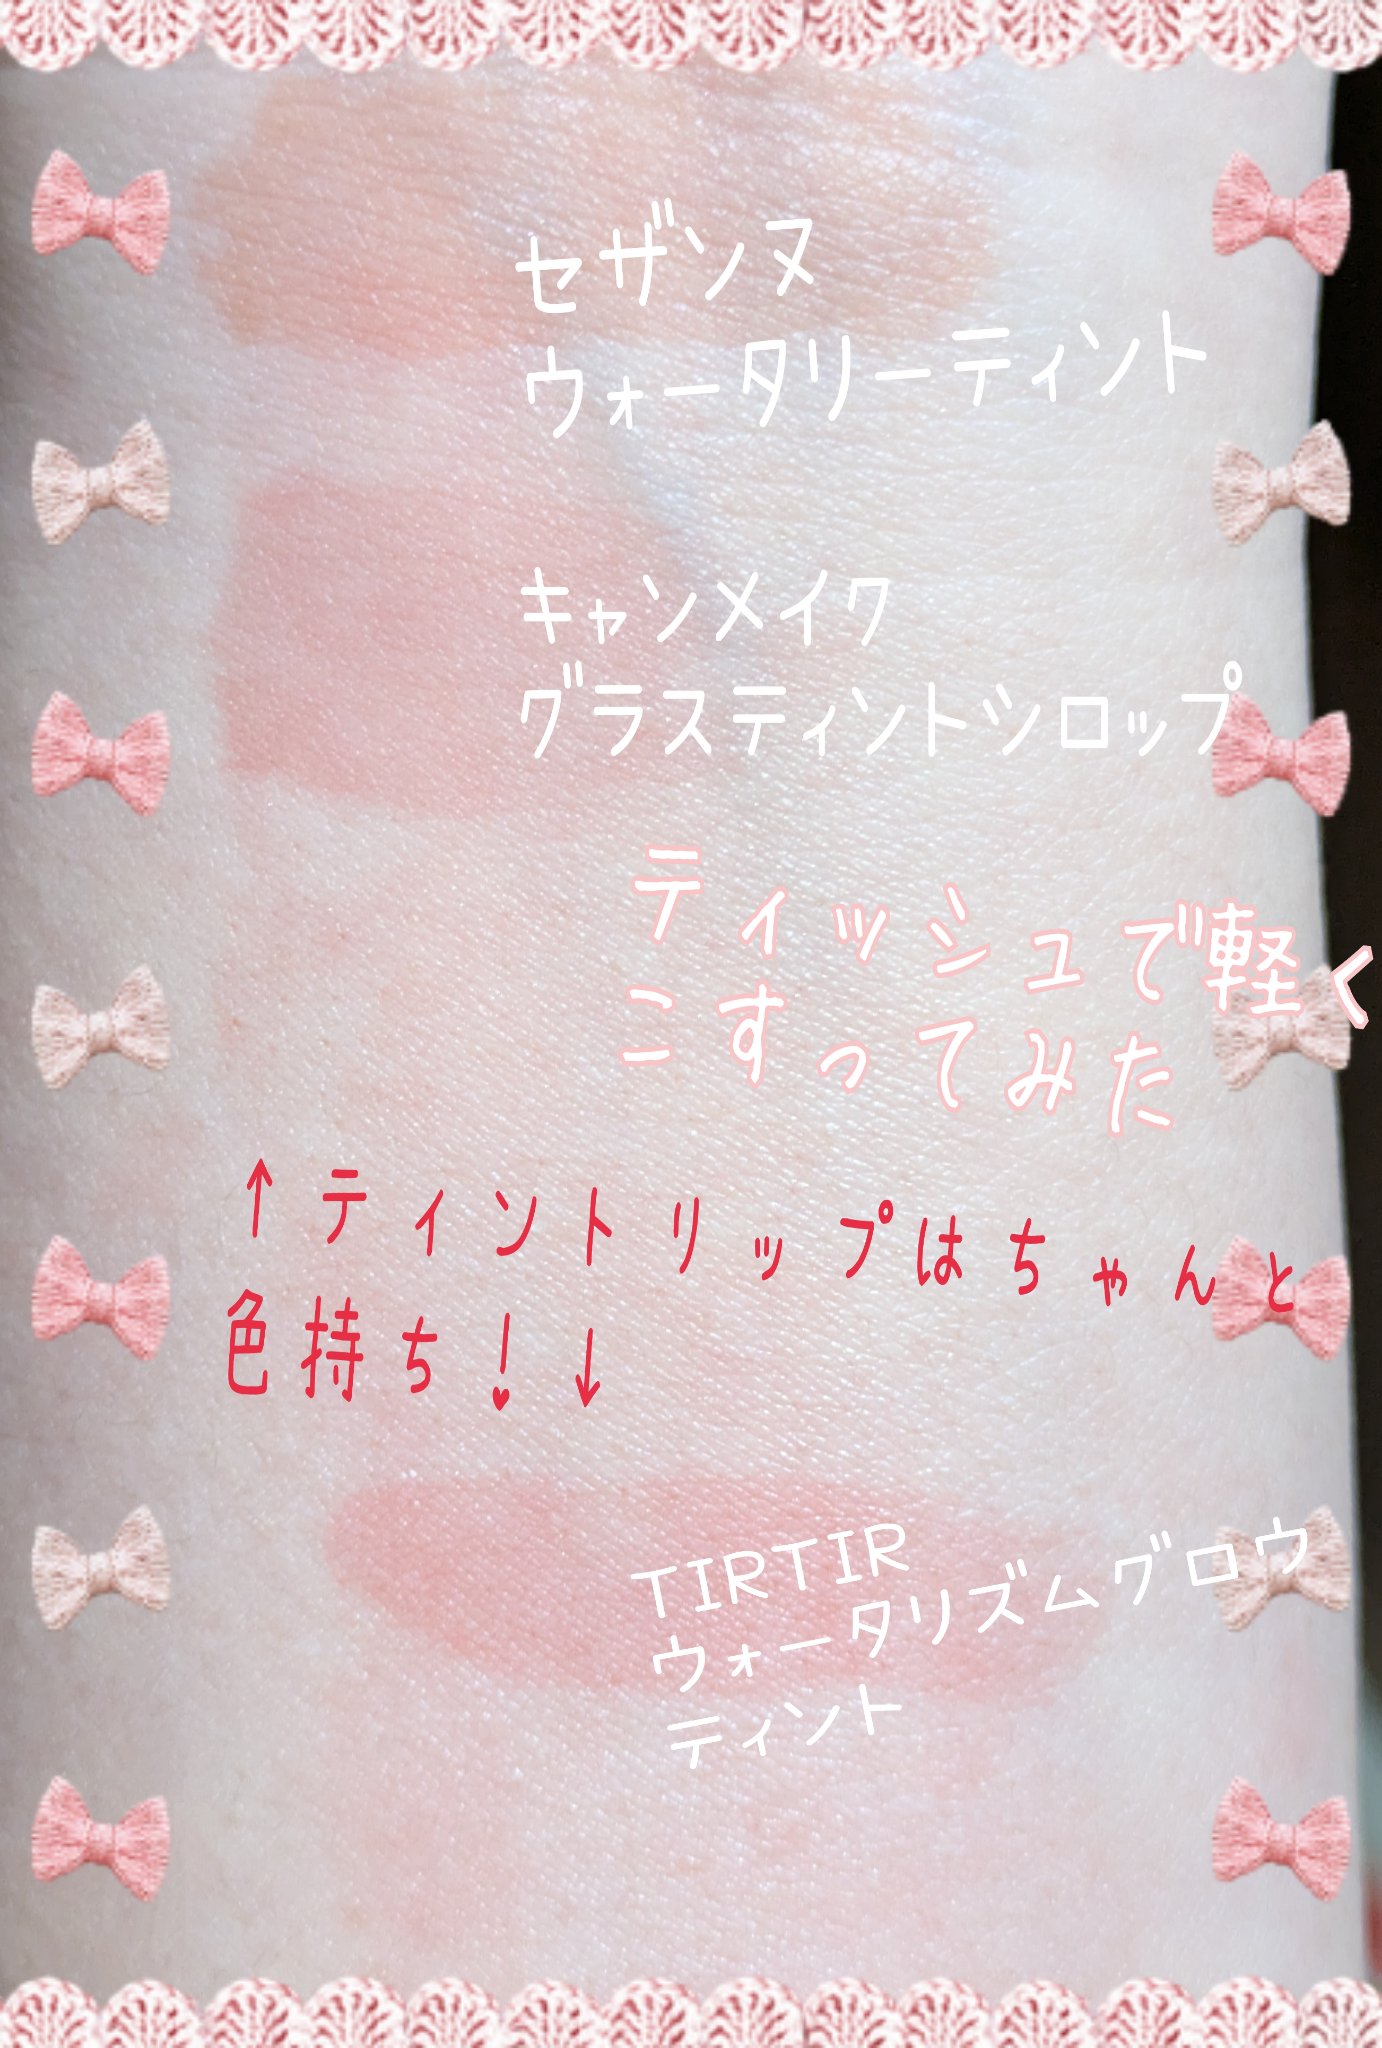 セザンヌ
ウォータリーティント
キャンメイク
グラスティントシロップ
ティッシュで軽く
こすってみた
↑ティントリップはちゃんと
色持ち！↓
TIRTIR
ウォータリズムグロウ
ティント